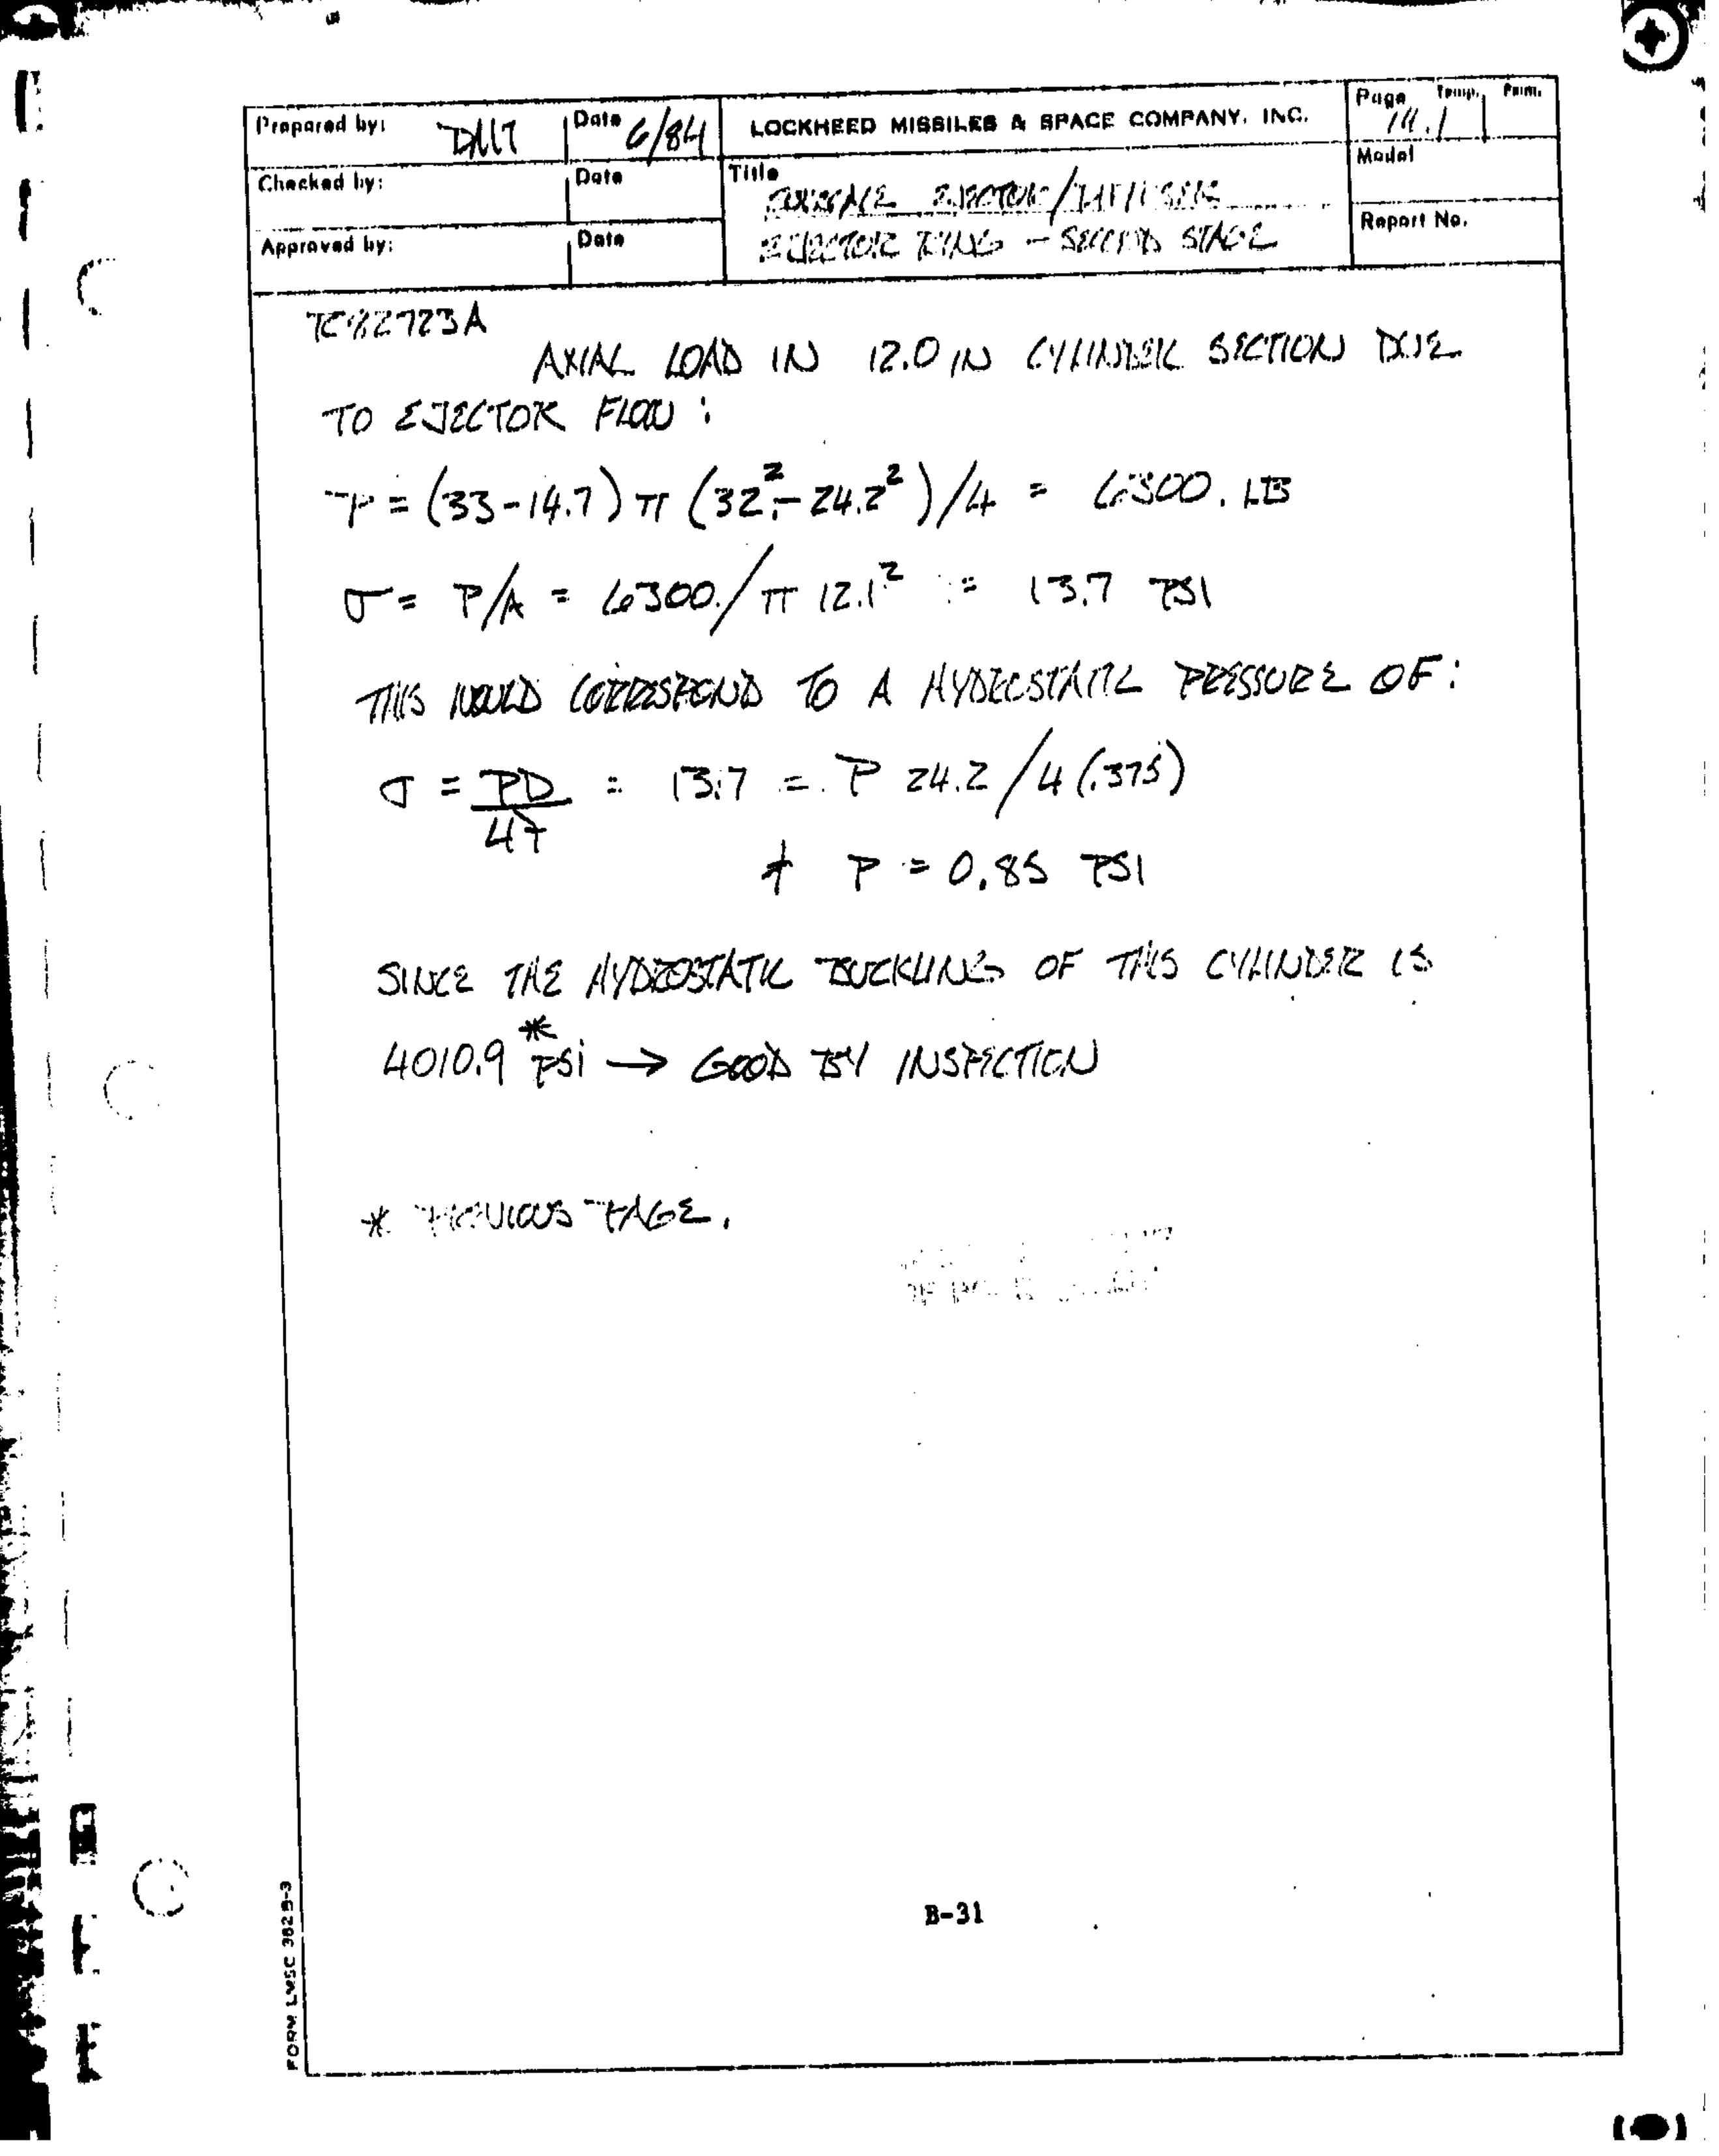 Prepared by: DMT Date 6/84 LOCKHEED MISSILES & SPACE COMPANY, INC. Page Temp. Perm.
14.1
Checked by: Date Title Model
EJECTOR/DIFFUSER
Approved by: Date EJECTOR RING - SECOND STAGE Report No.
AXIAL LOAD IN 12.0 IN CYLINDER SECTION DUE
TO EJECTOR FLOW :
P = (33-14.7) π (32²- 24.2²) /4 = 6300. LB
σ = P/A = 6300./π 12.1² = 13.7 PSI
THIS WOULD CORRESPOND TO A HYDROSTATIC PRESSURE OF:
σ = PD/4t = 13.7 = P 24.2 /4 (.375)
P = 0.85 PSI
SINCE THE HYDROSTATIC BUCKLING OF THIS CYLINDER IS
4010.9 * PSi → GOOD BY INSPECTION
* PREVIOUS PAGE.
B-31
FORM LMSC 3625-3